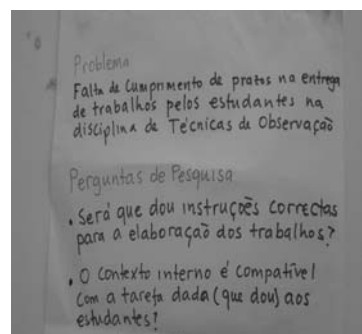 Problema
Falta de Cumprimento de prazos na entrega
de trabalhos pelos estudantes na
disciplina de Técnicas de Observação
Perguntas de Pesquisa
• Será que dou instruções correctas
para a elaboração dos trabalhos?
• O contexto interno é compatível
com a tarefa dada (que dou) aos
estudantes?